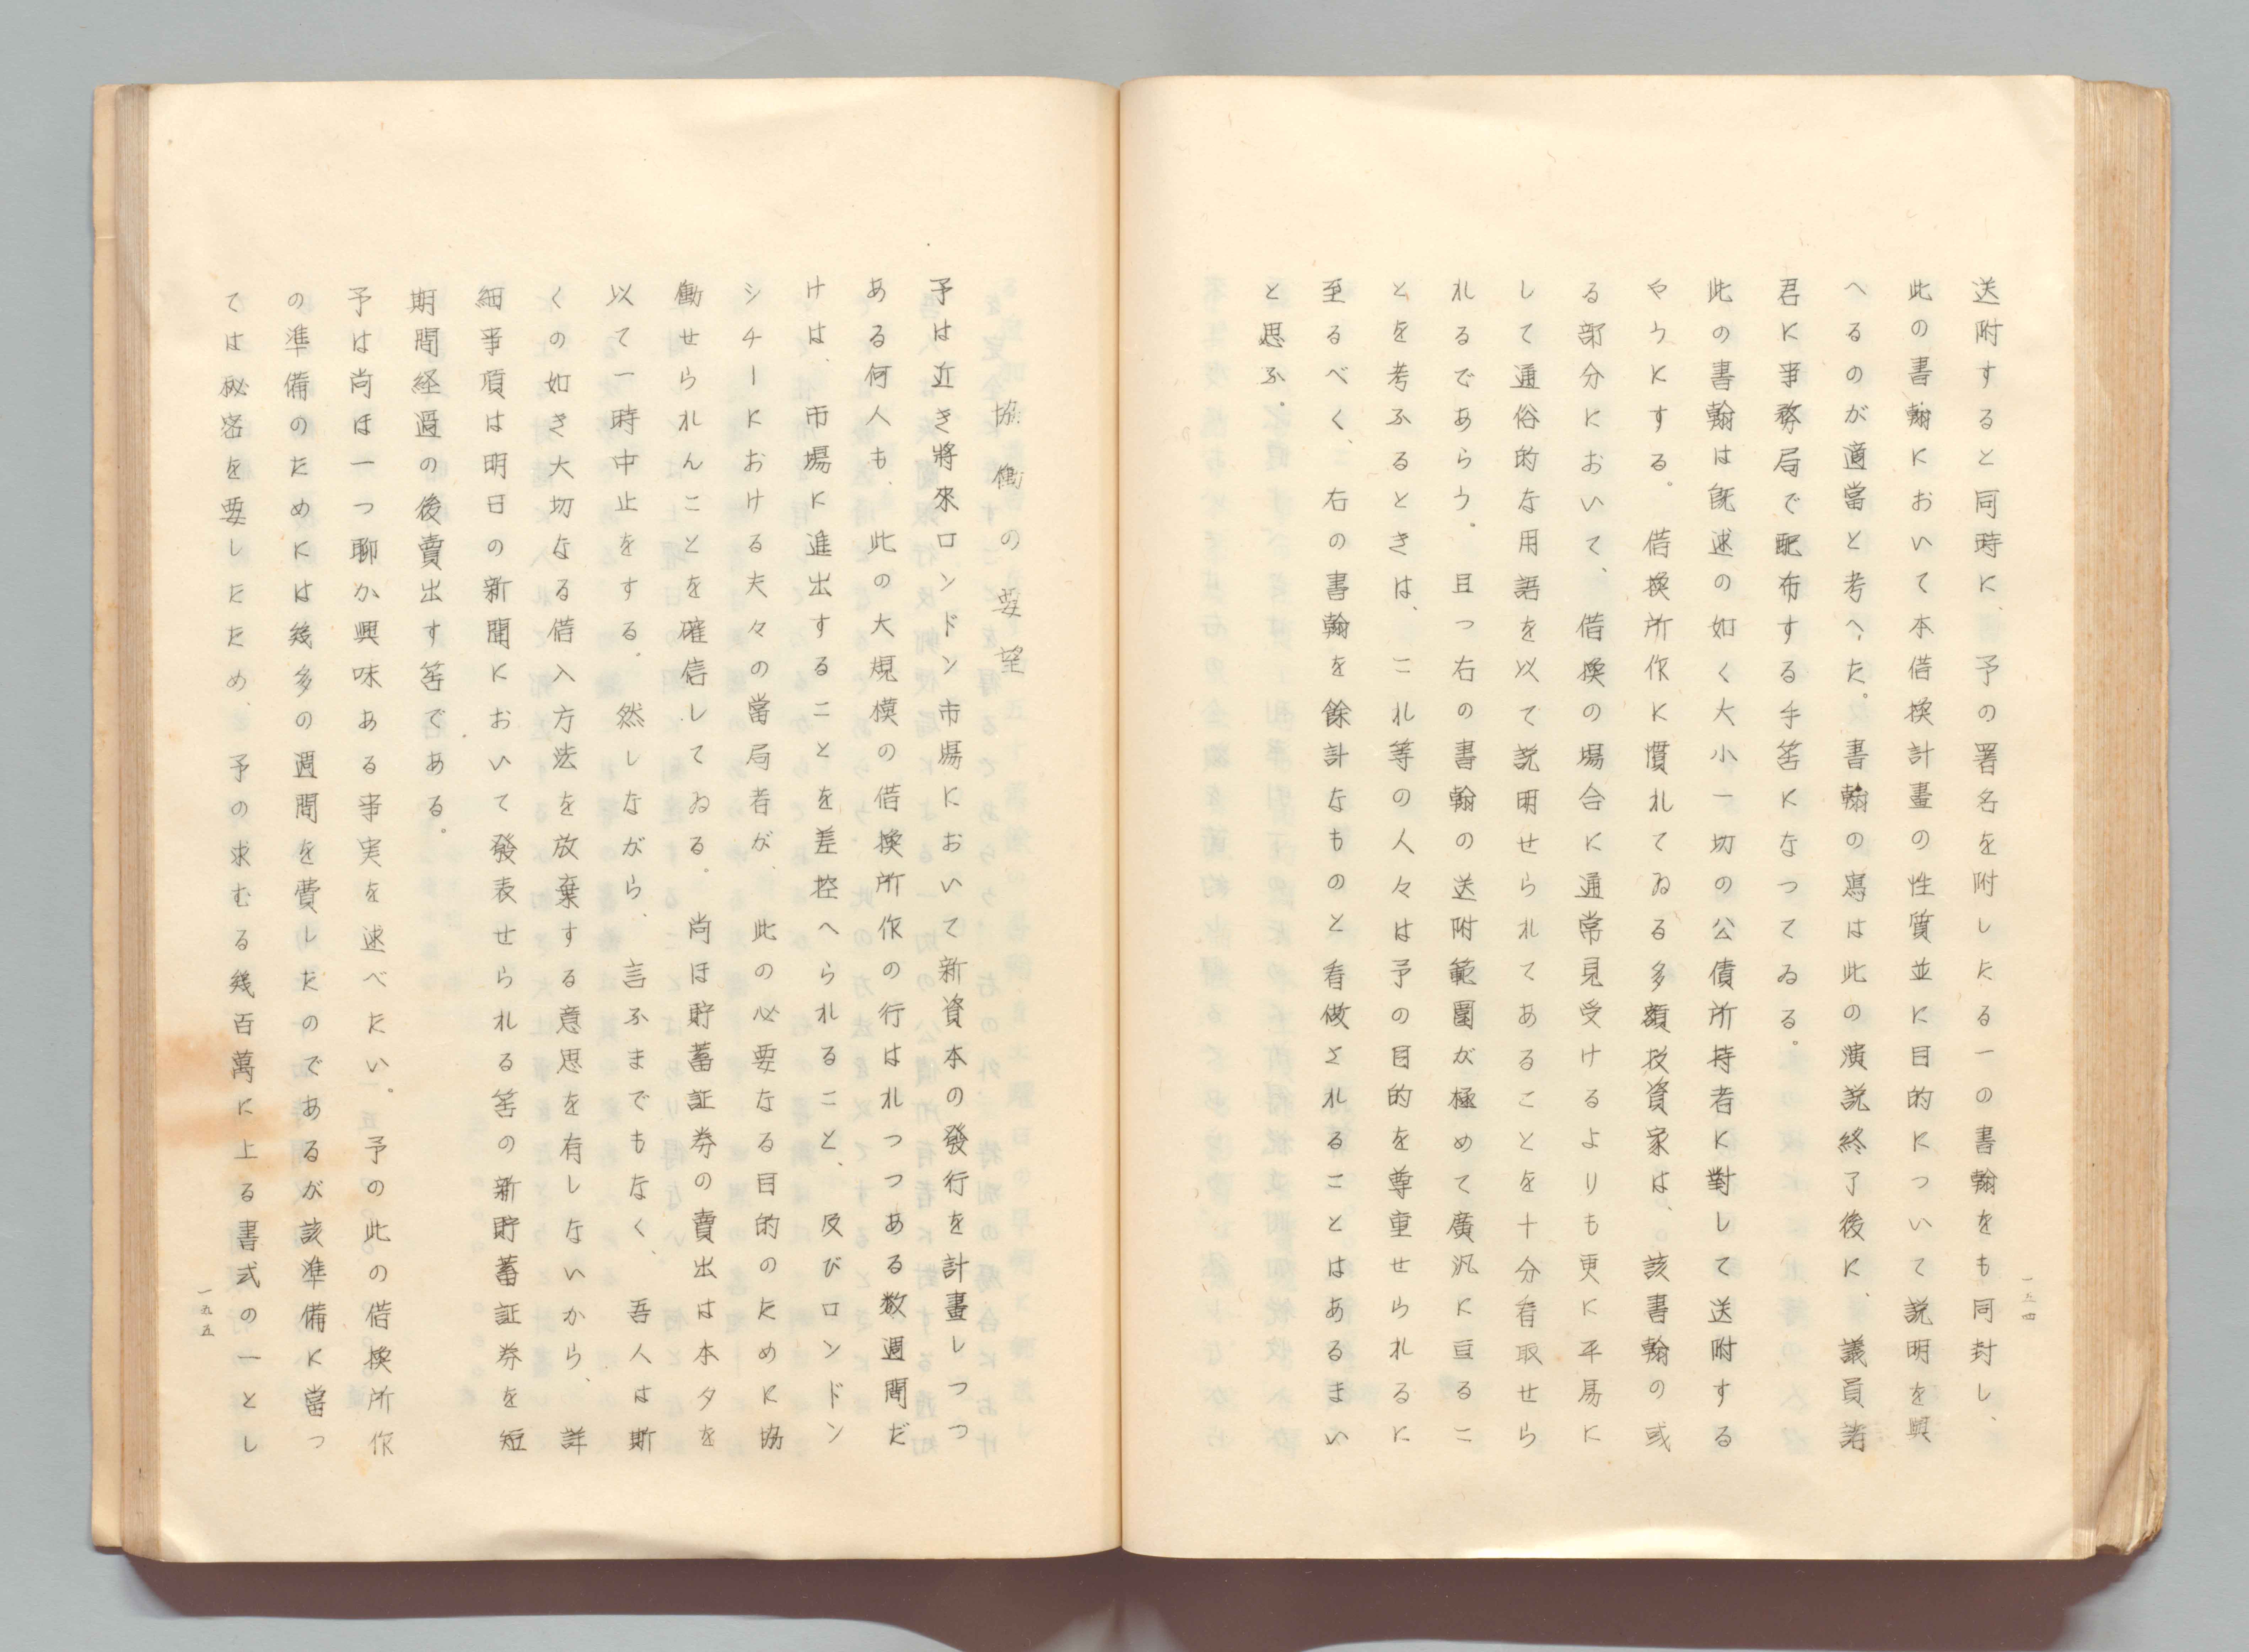 送附すると同時に、予の署名を附したる一の書翰をも同封し、
此の書翰において本借換計畫の性質並に目的について説明を與
へるのが適當と考へた。書翰の寫は此の演説終了後に、議員諸
君に事務局で配布する手筈になつてゐる。
此の書翰は既述の如く大小一切の公債所持者に對して送附する
やうにする。借換所作に慣れてゐる多額投資家は、該書翰の或
る部分において、借換の場合に通常見受けるよりも更に平易に
して通俗的な用語を以て説明せられてあることを十分看取せら
れるであらう。且つ右の書翰の送附範圍が極めて廣汎に亘るこ
とを考ふるときは、これ等の人々は予の目的を尊重せられるに
至るべく、右の書翰を餘計なものと看做されることはあるまい
と思ふ。
一五四
協働の要望
予は近き將來ロンドン市場において新資本の發行を計畫しつつ
ある何人も、此の大規模の借換所作の行はれつつある数週間だ
けは、市場に進出することを差控へられること、及びロンドン
シチーにおける夫々の當局者が、此の必要なる目的のために協
働せられんことを確信してゐる。尚ほ貯蓄証券の賣出は本夕を
以て一時中止をする。然しながら、言ふまでもなく、吾人は斯
くの如き大切なる借入方法を放棄する意思を有しないから、詳
細事項は明日の新聞において發表せられる筈の新貯蓄証券を短
期間経過の後賣出す筈である。
予は尚ほ一つ聊か興味ある事実を述べたい。予の此の借換所作
の準備のためには幾多の週間を費したのであるが該準備に當つ
ては秘密を要したため、予の求むる幾百萬に上る書式の一とし
一九五